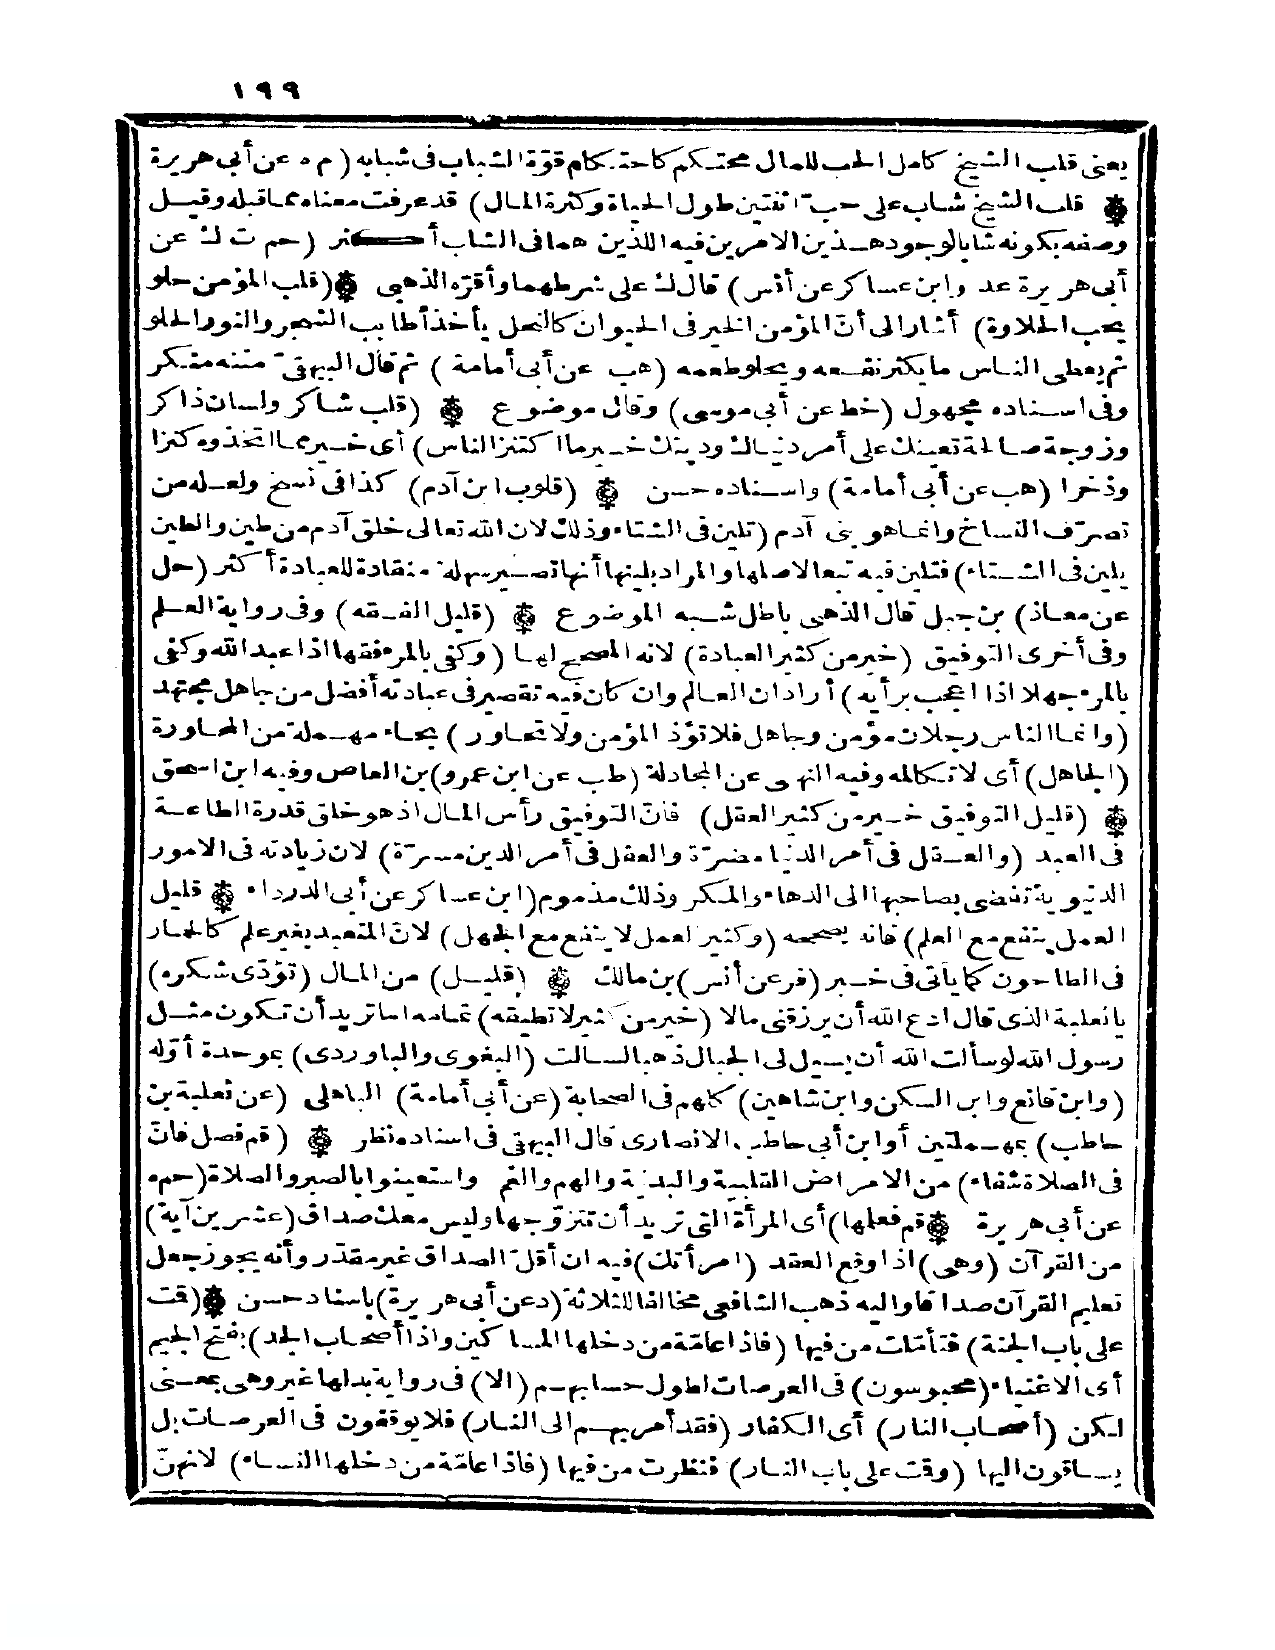 ١٩٩
يعنى قلب الشيخ كامل الحب للمال محتكم كاحتكام قوّة الشباب فى شبابه (م ه عن أبى هريرة
۞ قلب الشيخ شاب على حب اثنتين طول الحياة وكثرة المال) قد عرفت معناه مما قبله وقيل
وصفه بكونه شابا لوجود هذين الامرين فيه اللذين هما فى الشاب أكثر (حم ت ك عن
أبى هريرة عد وابن عساكر عن أنس) قال ك على شرطهما وأقرّه الذهبى ۞ (قلب المؤمن حلو
يحب الحلاوة) أشار الى أنّ المؤمن الخير فى الحيوان كالنحل يأخذ أطايب الشجر والنور الحلو
ثم يعطى الناس ما يكثر نفعه ويحلو طعمه (هب عن أبى أمامة) ثم قال البيهقىّ متنه منكر
وفى اسناده مجهول (خط عن أبى موسى) وقال موضوع ۞ (قلب شاكر ولسان ذاكر
وزوجة صالحة تعينك على أمر دنياك ودينك خير ما اكتنز الناس) أى خير مما اتخذوه كنزا
وذخرا (هب عن أبى أمامة) واسناده حسن ۞ (قلوب ابن آدم) كذا فى نسخ ولعله من
تصرّف النساخ وانما هو بنى آدم (تلين فى الشتاء وذلك لان الله تعالى خلق آدم من طين والطين
يلين فى الشتاء) فتلين فيه تبعا لاصلها والمراد بلينها أنها تصير سهلة منقادة للعبادة أكثر (حل
عن معاذ) بن جبل قال الذهبى باطل شبه الموضوع ۞ (قليل الفقه) وفى رواية العلم
وفى أخرى التوفيق (خير من كثير العبادة) لانه المصحح لها (وكفى بالمرء فقها اذا عبد الله وكفى
بالمرء جهلا اذا اعجب برأيه) أراد ان العالم وان كان فيه تقصير فى عبادته أفضل من جاهل مجتهد
(وانما الناس رجلان مؤمن وجاهل فلا تؤذ المؤمن ولا تحاور) بحاء مهملة من المحاورة
(الجاهل) أى لا تكالمه وفيه النهى عن المجادلة (طب عن ابن عمرو) بن العاص وفيه ابن اسحق
۞ (قليل التوفيق خير من كثير العقل) فانّ التوفيق رأس المال اذ هو خلق قدرة الطاعة
فى العبد (والعقل فى أمر الدنيا مضرّة والعقل فى أمر الدين مسرّة) لان زيادته فى الامور
الدنيوية تفضى بصاحبها الى الدهاء والمكر وذلك مذموم (ابن عساكر عن أبى الدرداء ۞ قليل
العمل ينفع مع العلم) فانه يصححه (وكثير العمل لا ينفع مع الجهل) لانّ المتعبد بغير علم كالحمار
فى الطاحون كما يأتى فى خبر (فر عن أنس) بن مالك ۞ (قليل) من المال (تؤدّى شكره)
يا ثعلبة الذى قال ادع الله أن يرزقنى مالا (خير من كثير لا تطيقه) تمامه اما تريد أن تكون مثل
رسول الله لو سألت الله أن يسيل لى الجبال ذهبا لسالت (البغوى والباوردى) بموحدة أوّله
(وابن قانع وابن السكن وابن شاهين) كلهم فى الصحابة (عن أبى أمامة) الباهلى (عن ثعلبة بن
حاطب) بمهملتين أو ابن أبى حاطب الانصارى قال البيهقى فى اسناده نظر ۞ (قم فصل فانّ
فى الصلاة شفاء) من الامراض القلبية والبدنية والهم والغم واستعينوا بالصبر والصلاة (حم ه
عن أبى هريرة ۞ قم فعلمها) أى المرأة التى تريد أن تتزوّجها وليس معك صداق (عشرين آية)
من القرآن (وهى) اذا وقع العقد (امرأتك) فيه ان أقلّ الصداق غير مقدّر وأنه يجوز جعل
تعليم القرآن صداقا واليه ذهب الشافعى مخالفا للثلاثة (د عن أبى هريرة) باسناد حسن ۞ (قمت
على باب الجنة) فتأمّلت من فيها (فاذا عامّة من دخلها المساكين واذا أصحاب الجد) بفتح الجيم
أى الاغنياء (محبوسون) فى العرصات لطول حسابهم (الا) فى رواية بدلها غير وهى بمعنى
لكن (أصحاب النار) أى الكفار (فقد أمر بهم الى النار) فلا يوقفون فى العرصات بل
يساقون اليها (وقمت على باب النار) فنظرت من فيها (فاذا عامّة من دخلها النساء) لانهنّ